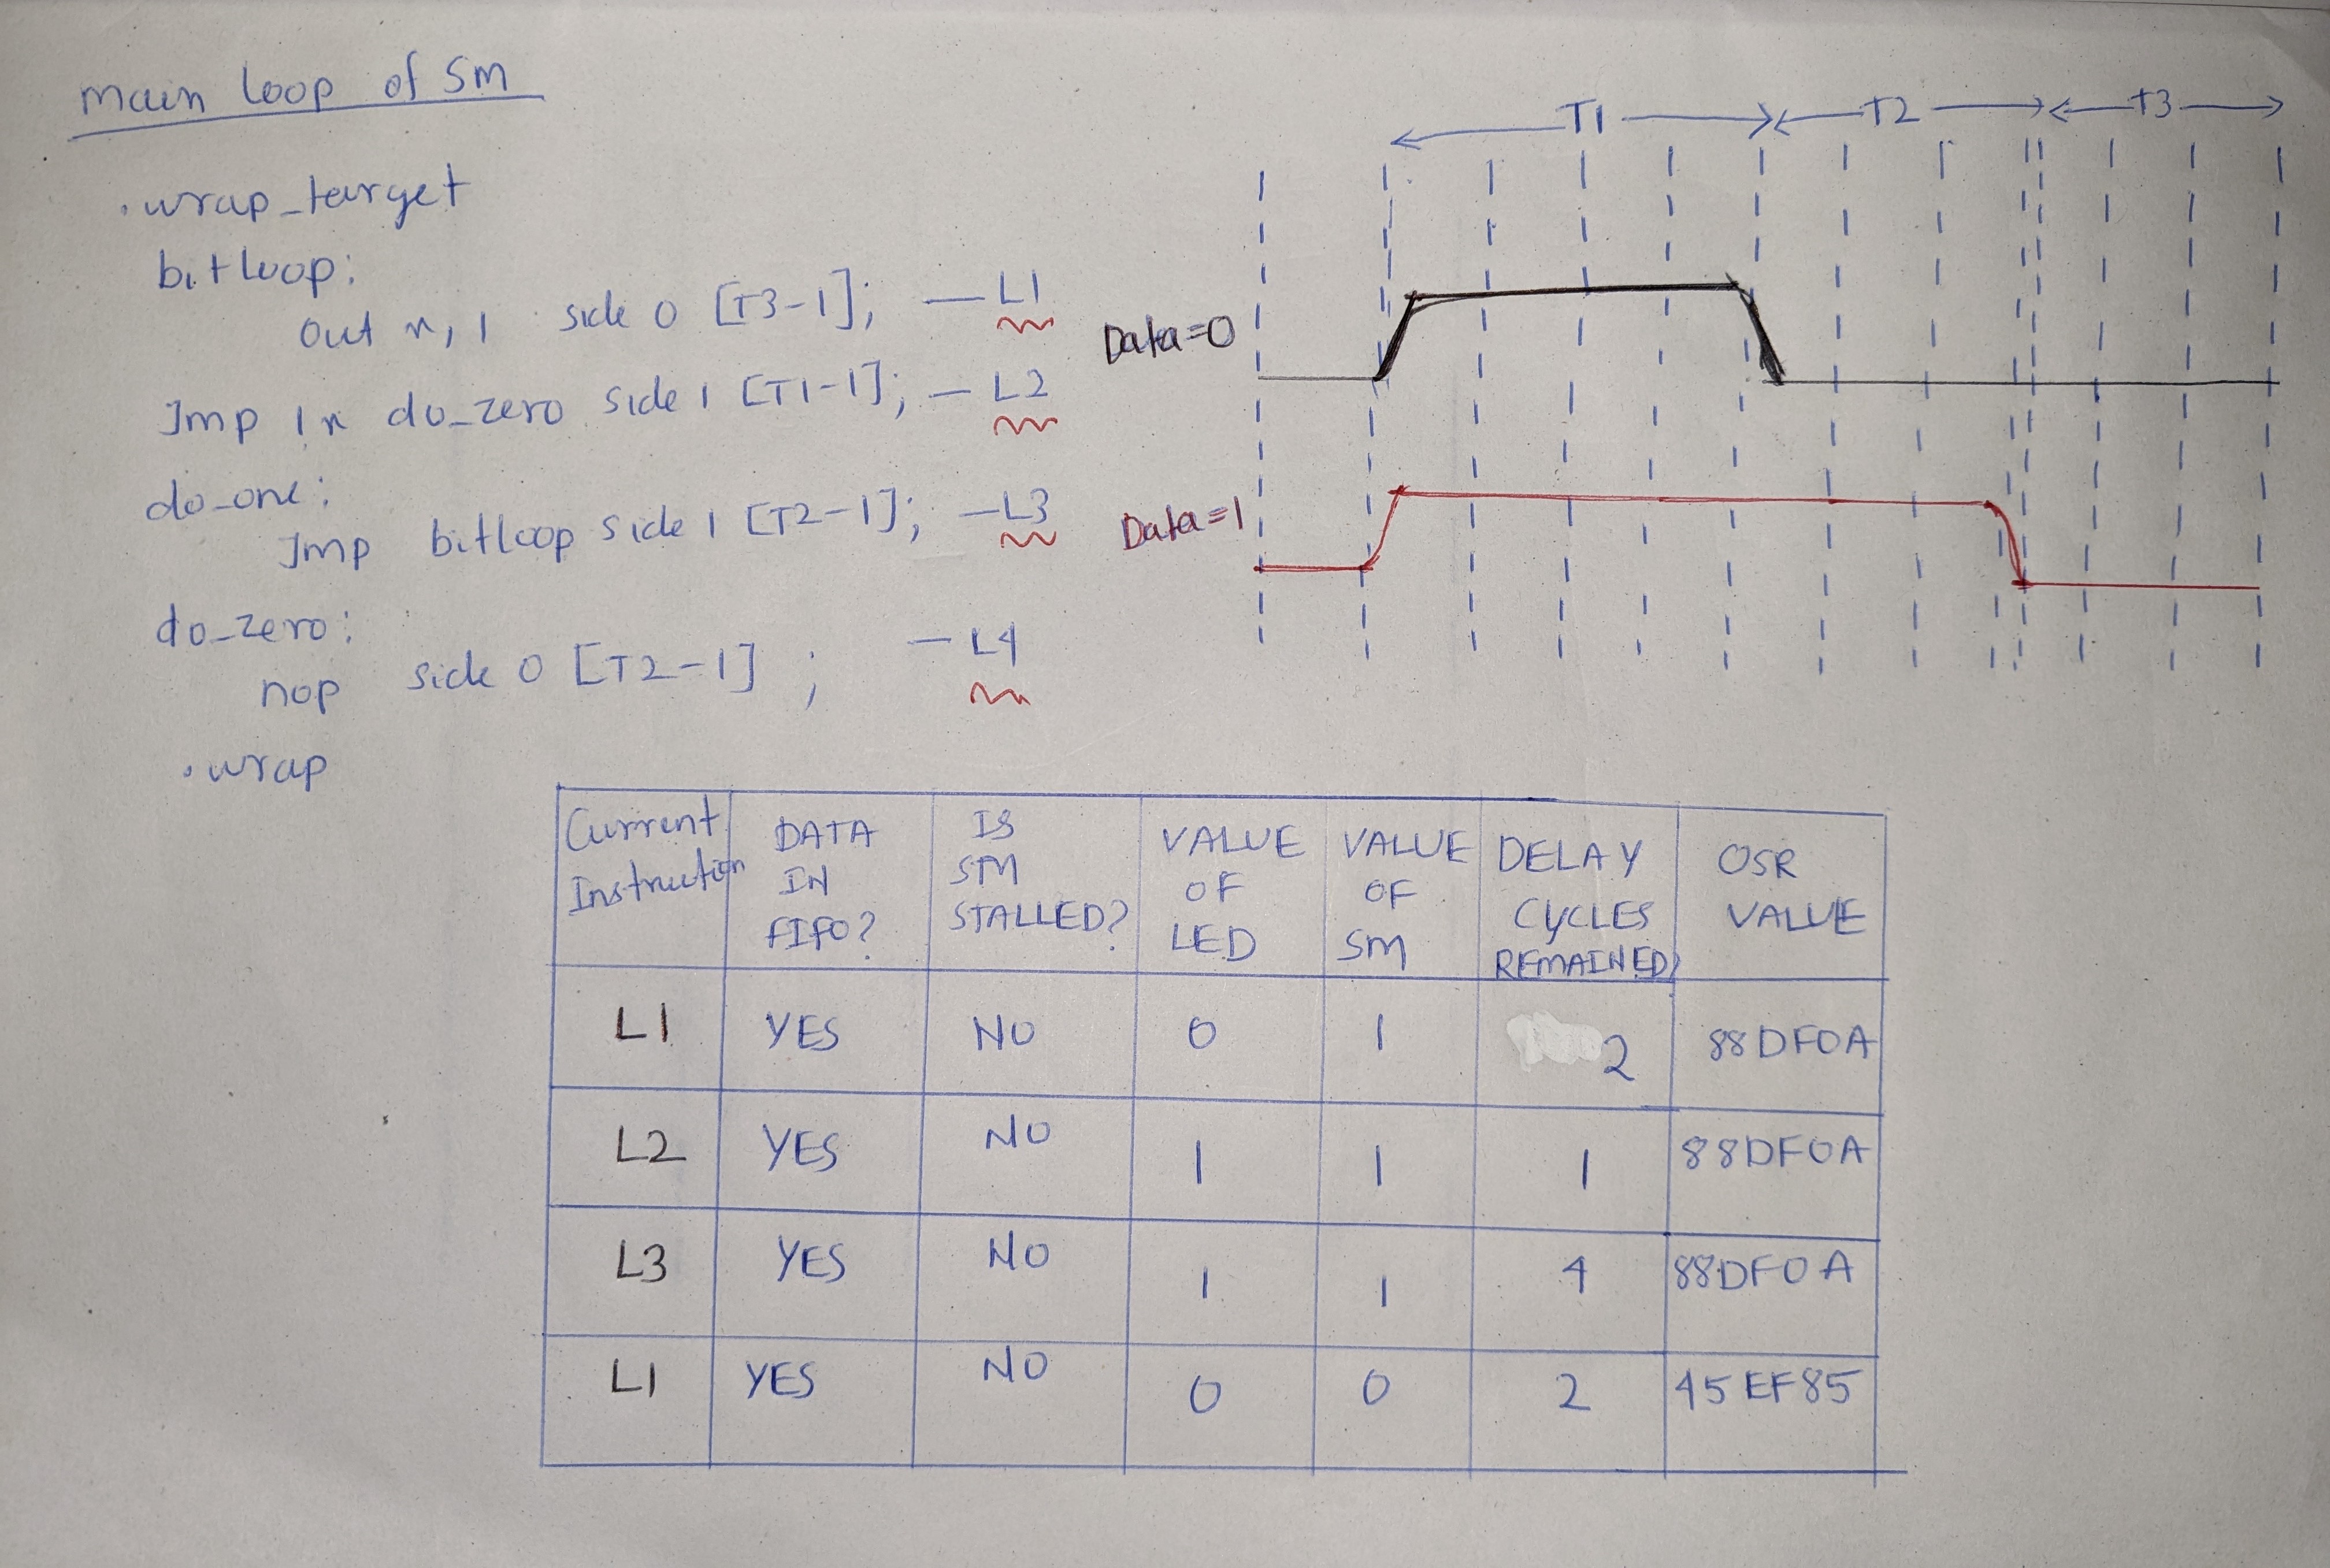 main loop of SM
.wrap_target
bitloop:
out x, 1 side 0 [T3-1]; — L1
Jmp !x do_zero side 1 [T1-1]; — L2
do_one:
Jmp bitloop side 1 [T2-1]; — L3
do_zero:
nop side 0 [T2-1] ; — L4
.wrap
T1 T2 T3
Data=0
Data=1
Current Instruction | DATA IN FIFO? | IS SM STALLED? | VALUE OF LED | VALUE OF SM | DELAY CYCLES REMAINED | OSR VALUE
L1 | YES | NO | 0 | 1 | 2 | 88DF0A
L2 | YES | NO | 1 | 1 | 1 | 88DF0A
L3 | YES | NO | 1 | 1 | 4 | 88DF0A
L1 | YES | NO | 0 | 0 | 2 | 45EF85